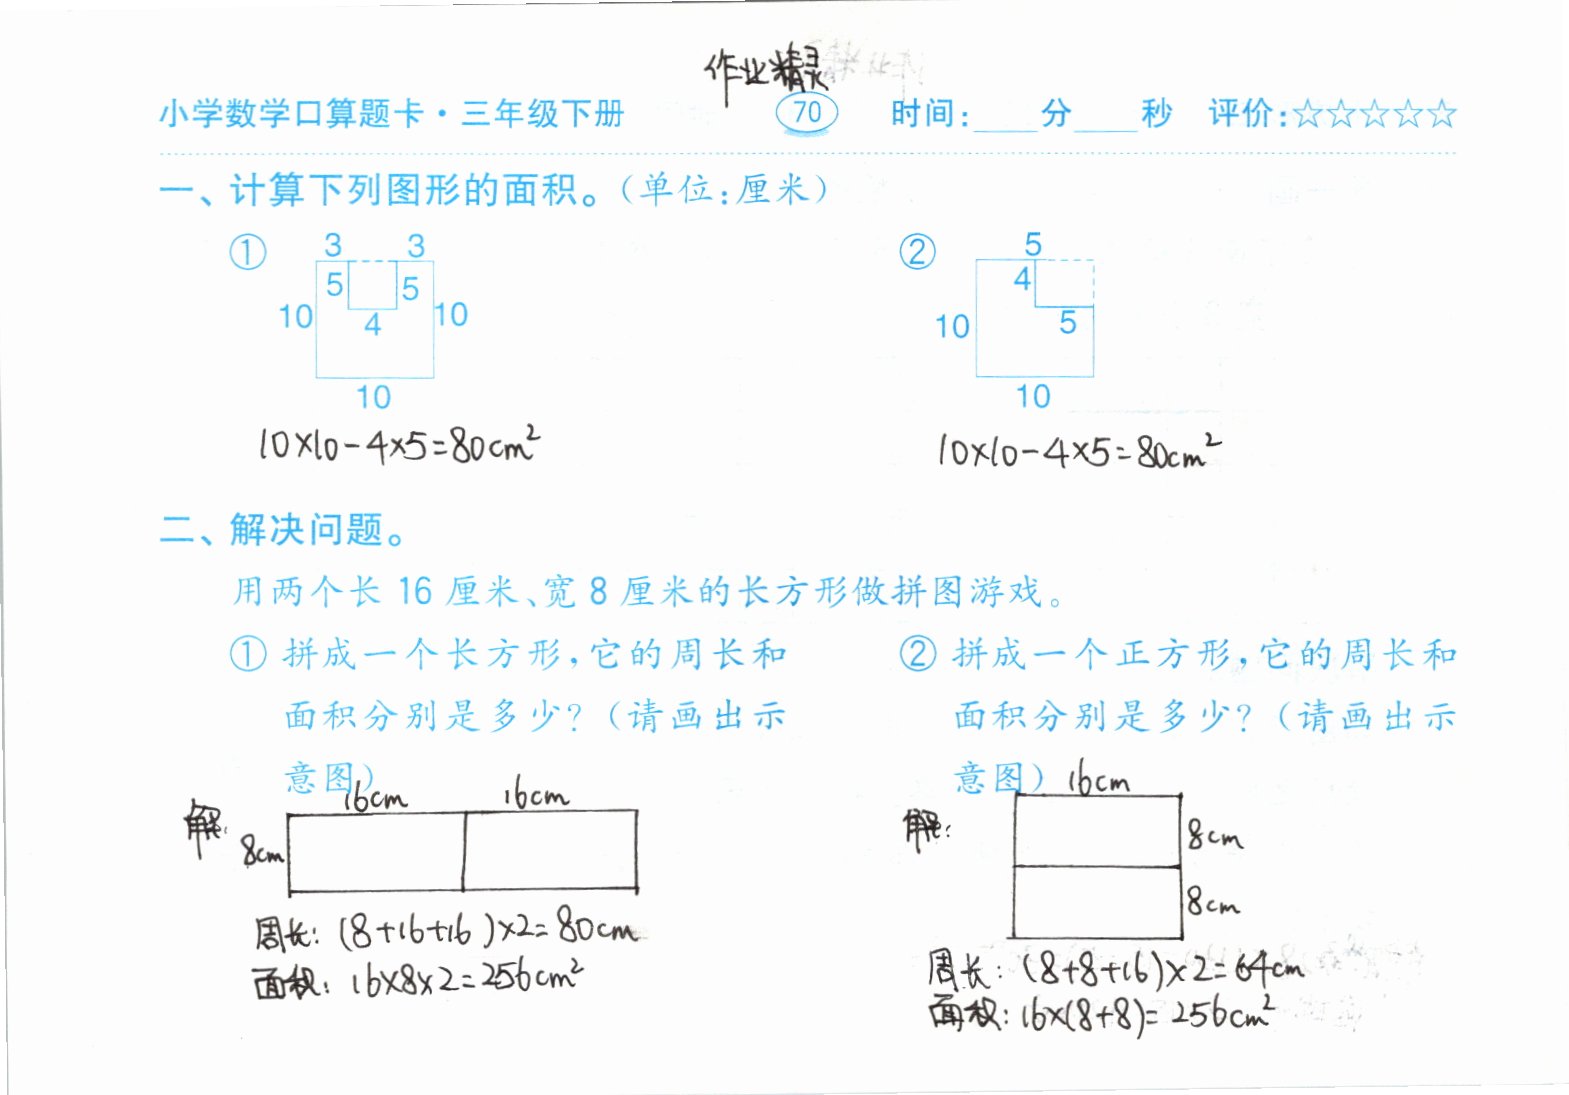 作业精灵
小学数学口算题卡·三年级下册 70 时间:____分____秒 评价:☆☆☆☆☆
一、计算下列图形的面积。(单位:厘米)
① 3 3 5 5 10 4 10 10
② 5 4 10 5 10
10×10-4×5=80cm²
10×10-4×5=80cm²
二、解决问题。
用两个长 16 厘米、宽 8 厘米的长方形做拼图游戏。
① 拼成一个长方形,它的周长和
面积分别是多少?(请画出示
意图)
解:
16cm 16cm
8cm
周长:(8+16+16)×2=80cm
面积:16×8×2=256cm²
② 拼成一个正方形,它的周长和
面积分别是多少?(请画出示
意图)
解:
16cm
8cm
8cm
周长:(8+8+16)×2=64cm
面积:16×(8+8)=256cm²